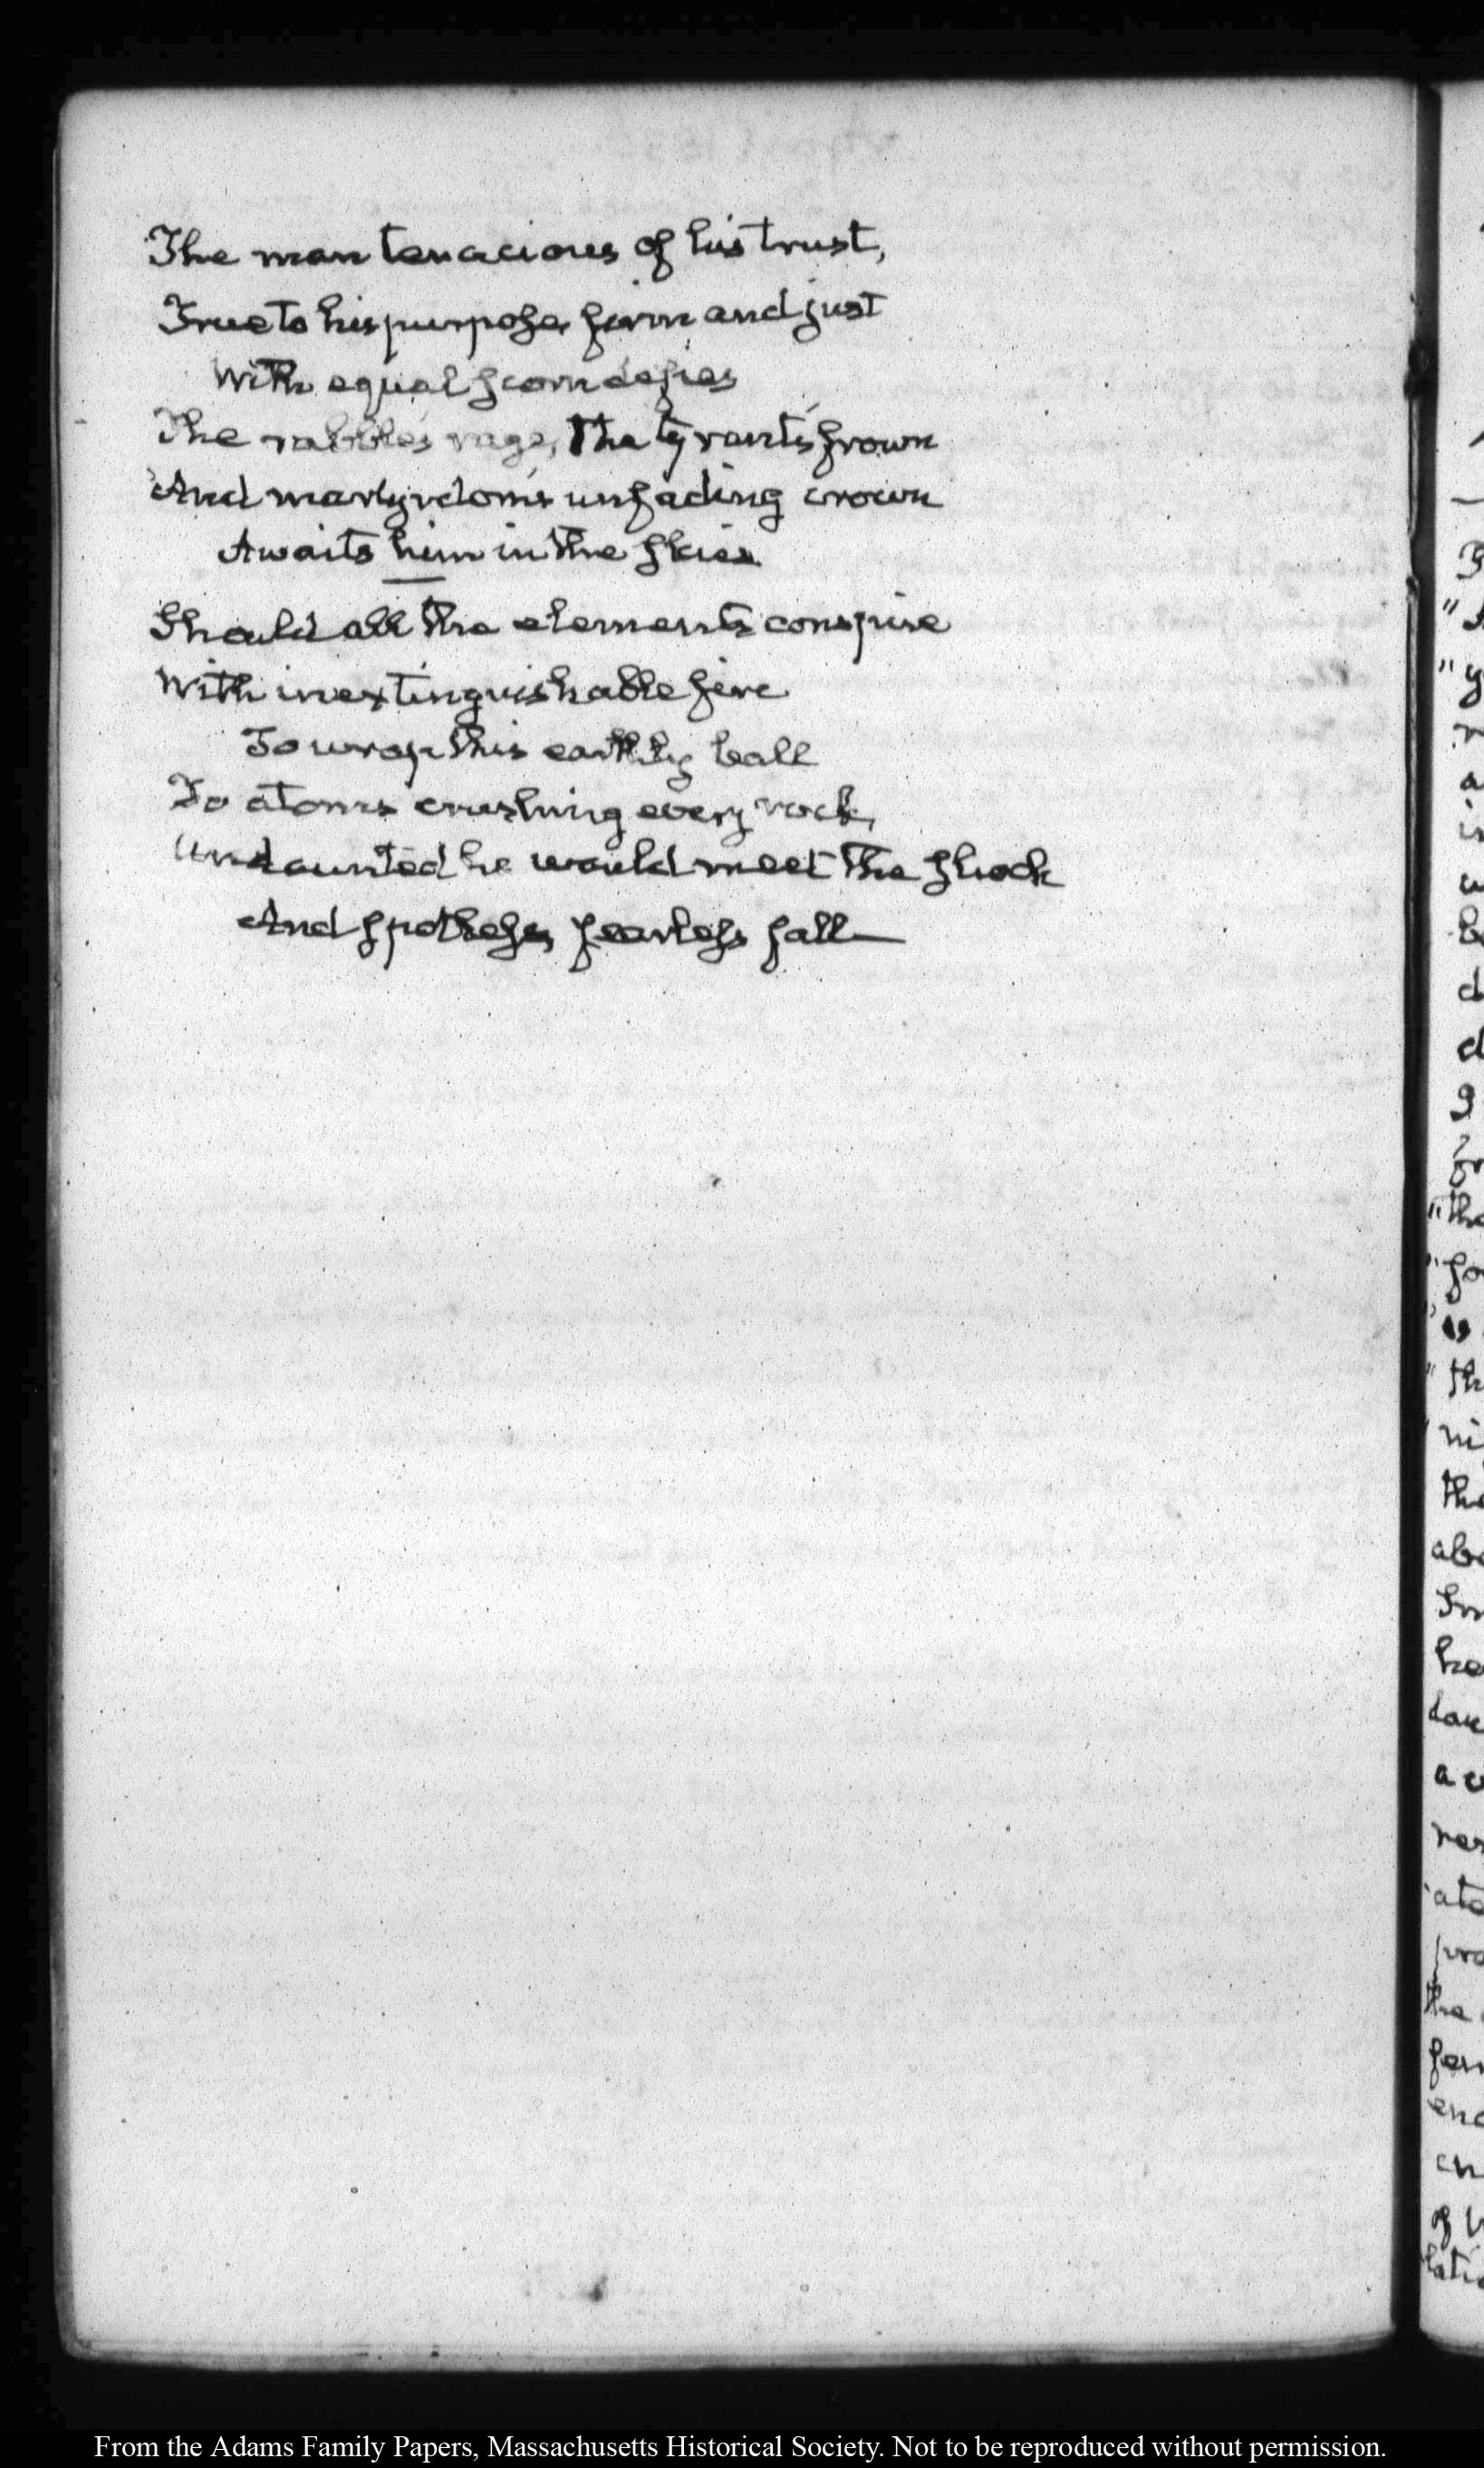 The man tenacious of his trust,
True to his purpose, firm and just
With equal scorn defies
The rabble's rage, the tyrant's frown
And martyrdom's unfading crown
Awaits him in the skies.
Should all the elements conspire
With inextinguishable fire
To wrap this earthly ball
To atoms crushing every rock,
Undaunted he would meet the shock
And spotless, fearless fall—
From the Adams Family Papers, Massachusetts Historical Society. Not to be reproduced without permission.